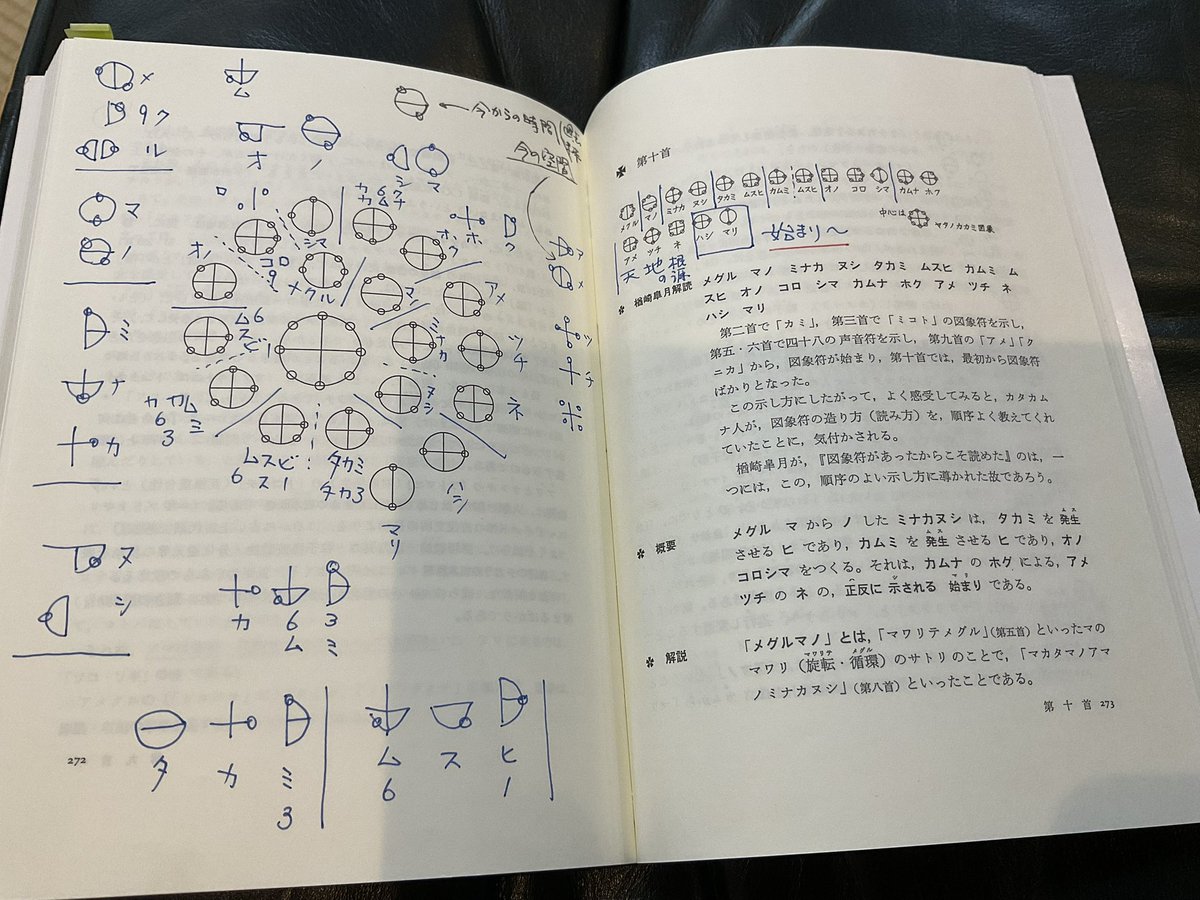 メ
ム
9 ク
ル
オ
ノ
シ
マ
←今からの時間
今の空間
マ
ノ
ミ
ナ
カ
ヌ
シ
オノ
コロ
9
シマ
メクル
カムナ
ホ
ク
ホ
ク
マ
アメ
ア
メ
ミナカ
ツチ
ツ
チ
ヌシ
ネ
ム6
ス
ビ1
カ カム
6 ミ
3
ムスビ
6 ス1
タカミ
タカ3
ハシ
マリ
カ 6 3
ム ミ
タ カ ミ
3
ム ス ヒ
6 1
272
第十首
メグル マノ ミナカ ヌシ タカミ ムスヒ カムミ ムスヒ オノ コロ シマ カムナ ホク
アメ ツチ ネ ハシ マリ
始まり〜
中心は ヤタノカカミ図象
天 地 根
の
楢崎皐月解読
メグル マノ ミナカ ヌシ タカミ ムスヒ カムミ ム
スヒ オノ コロ シマ カムナ ホク アメ ツチ ネ
ハシ マリ
第二首で「カミ」，第三首で「ミコト」の図象符を示し，
第五・六首で四十八の声音符を示し，第九首の「アメ」「ク
ニカ」から，図象符が始まり，第十首では，最初から図象符
ばかりとなった。
この示し方にしたがって，よく感受してみると，カタカム
ナ人が，図象符の造り方（読み方）を，順序よく教えてくれ
ていたことに，気付かされる。
楢崎皐月が，『図象符があったからこそ読めた』のは，一
つには，この，順序のよい示し方に導かれた故であろう。
概要
メグル マ から ノ した ミナカヌシ は，タカミ を 発生
させる ヒ であり，カムミ を 発生 させる ヒ であり，オノ
コロシマ をつくる。それは，カムナ の ホグ による，アメ
ツチ の ネ の，正反に 示される 始まり である。
解説
「メグルマノ」とは，「マワリテメグル」（第五首）といったマの
マワリ（旋転・循環）のサトリのことで，「マカタマノアマ
ノミナカヌシ」（第八首）といったことである。
第 十 首 273